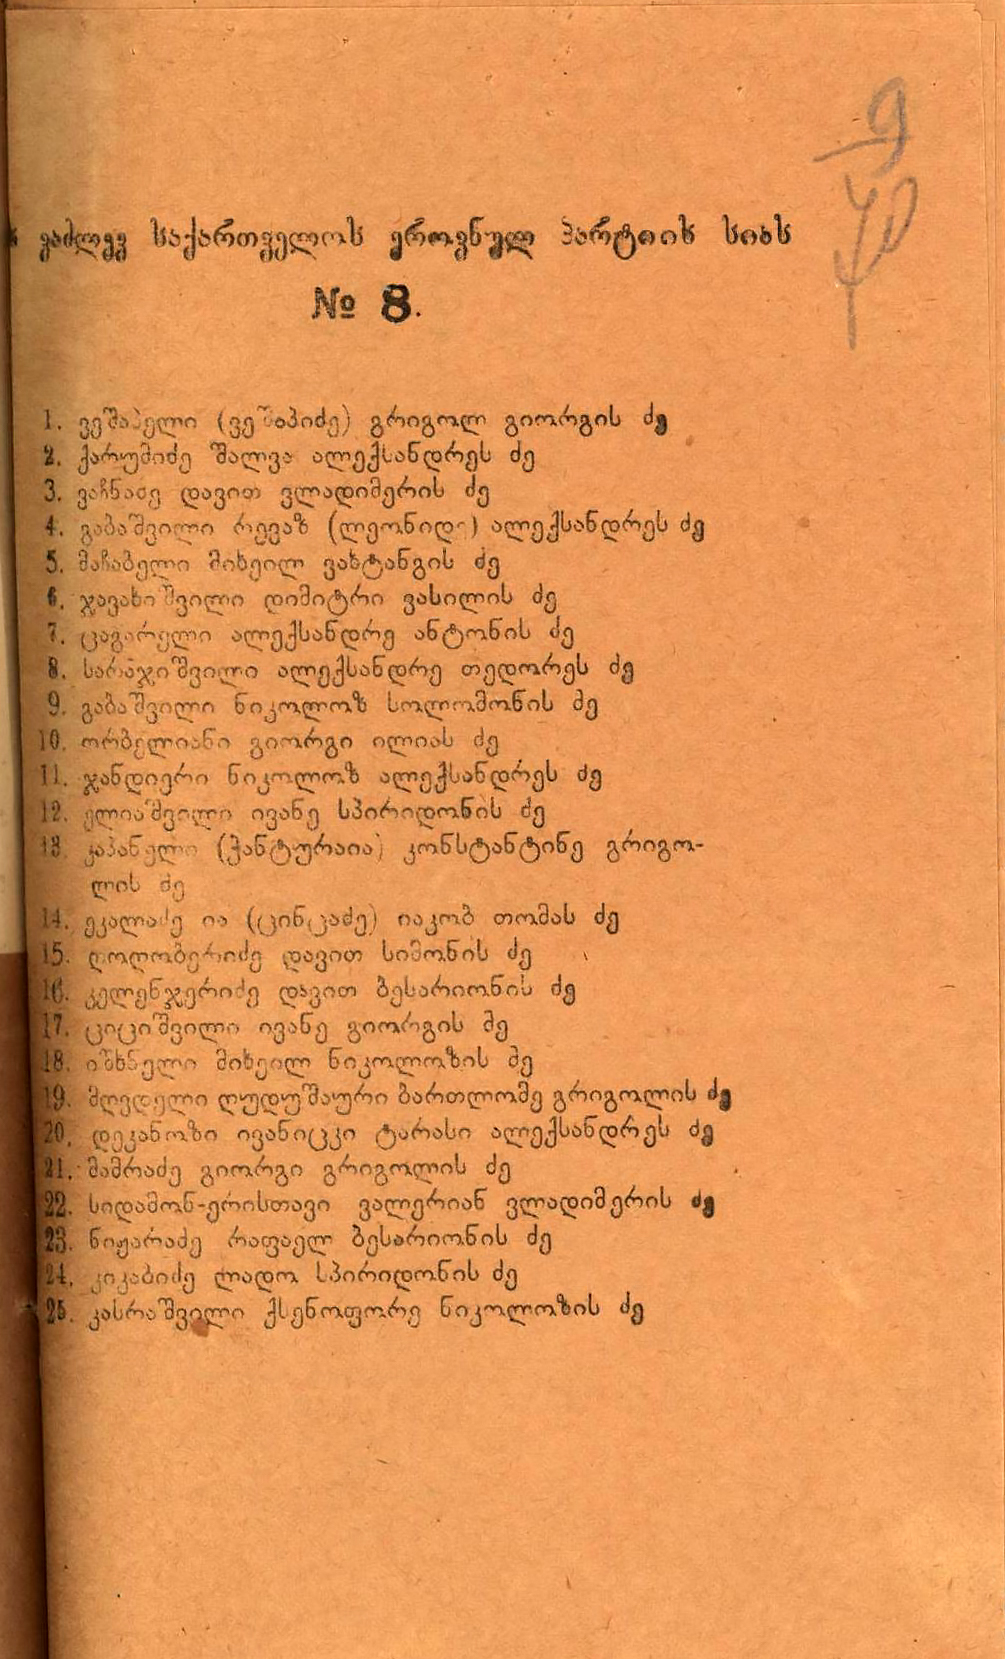 ვაძლევ საქართველოს ეროვნულ პარტიის სიას
№ 8.
9
40
1. ვეშაპელი (ვეშაპიძე) გრიგოლ გიორგის ძე
2. ქარუმიძე შალვა ალექსანდრეს ძე
3. ვაჩნაძე დავით ვლადიმერის ძე
4. გაბაშვილი რევაზ (ლეონიდე) ალექსანდრეს ძე
5. მაჩაბელი მიხეილ ვახტანგის ძე
6. ჯავახიშვილი დიმიტრი ვასილის ძე
7. ცაგარელი ალექსანდრე ანტონის ძე
8. სარაჯიშვილი ალექსანდრე თედორეს ძე
9. გაბაშვილი ნიკოლოზ სოლომონის ძე
10. ორბელიანი გიორგი ილიას ძე
11. ჯანდიერი ნიკოლოზ ალექსანდრეს ძე
12. ელიაშვილი ივანე სპირიდონის ძე
13. კაპანელი (ჭანტურაია) კონსტანტინე გრიგო-
ლის ძე
14. ეკალაძე ია (ცინცაძე) იაკობ თომას ძე
15. ღოღობერიძე დავით სიმონის ძე
16. კელენჯერიძე დავით ბესარიონის ძე
17. ციციშვილი ივანე გიორგის ძე
18. იშხნელი მიხეილ ნიკოლოზის ძე
19. მღვდელი ღუდუშაური ბართლომე გრიგოლის ძე
20. დეკანოზი ივანიცკი ტარასი ალექსანდრეს ძე
21. მამრაძე გიორგი გრიგოლის ძე
22. სიდამონ-ერისთავი ვალერიან ვლადიმერის ძე
23. ნიჟარაძე რაფაელ ბესარიონის ძე
24. კიკაბიძე ლადო სპირიდონის ძე
25. კასრაშვილი ქსენოფორე ნიკოლოზის ძე